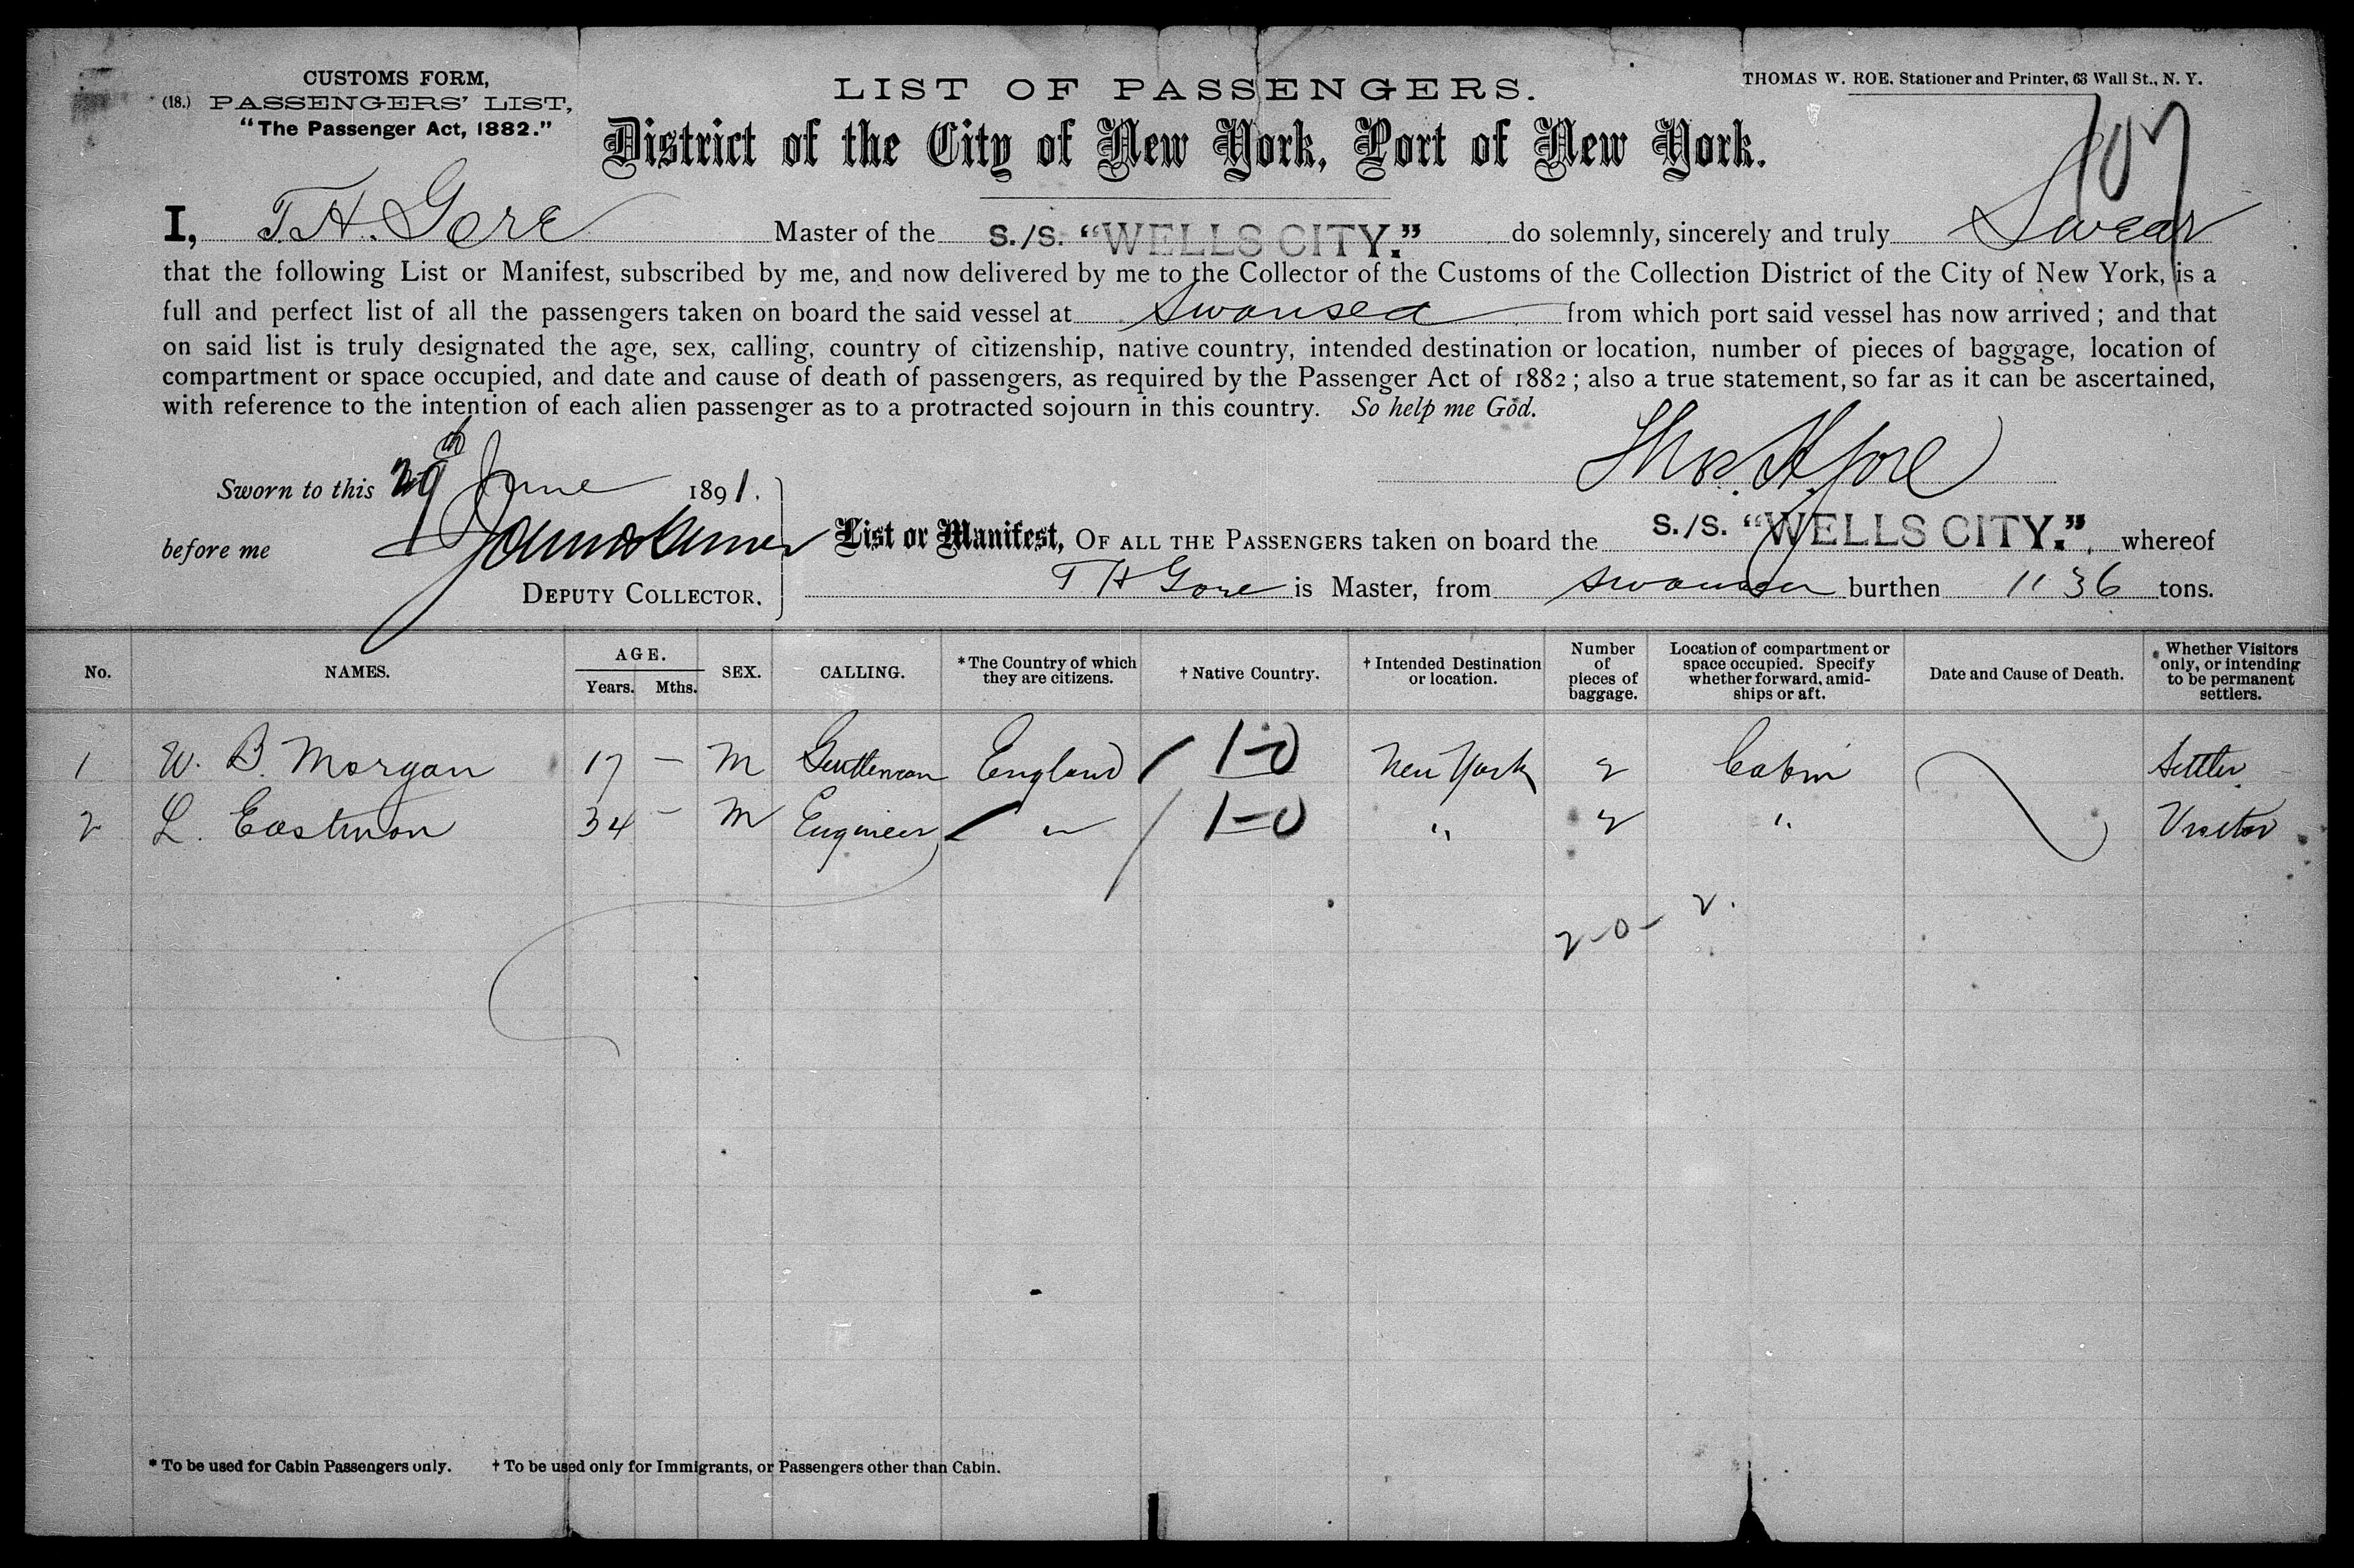 CUSTOMS FORM,
(18.) PASSENGERS' LIST,
"The Passenger Act, 1882."
LIST OF PASSENGERS.
THOMAS W. ROE. Stationer and Printer, 63 Wall St., N. Y.
District of the City of New York, Port of New York.
107
I, T. H. Gore Master of the S./S. "WELLS CITY." do solemnly, sincerely and truly Swear
that the following List or Manifest, subscribed by me, and now delivered by me to the Collector of the Customs of the Collection District of the City of New York, is a
full and perfect list of all the passengers taken on board the said vessel at Swansea from which port said vessel has now arrived; and that
on said list is truly designated the age, sex, calling, country of citizenship, native country, intended destination or location, number of pieces of baggage, location of
compartment or space occupied, and date and cause of death of passengers, as required by the Passenger Act of 1882; also a true statement, so far as it can be ascertained,
with reference to the intention of each alien passenger as to a protracted sojourn in this country. So help me God.
Thos. H. Gore
Sworn to this 29th June 1891.
before me
DEPUTY COLLECTOR.
List or Manifest, OF ALL THE PASSENGERS taken on board the S./S. "WELLS CITY." whereof
T H Gore is Master, from Swansea burthen 1136 tons.
No. NAMES. AGE. Years. Mths. SEX. CALLING. *The Country of which they are citizens. †Native Country. †Intended Destination or location. Number of pieces of baggage. Location of compartment or space occupied. Specify whether forward, amid-ships or aft. Date and Cause of Death. Whether Visitors only, or intending to be permanent settlers.
1 W. B. Morgan 17 — M Gentleman England / 1-0 New York 2 Cabin Settler
2 L. Eastman 34 — M Engineer " / 1-0 " 2 " Visitor
2-0-2.
* To be used for Cabin Passengers only. † To be used only for Immigrants, or Passengers other than Cabin.